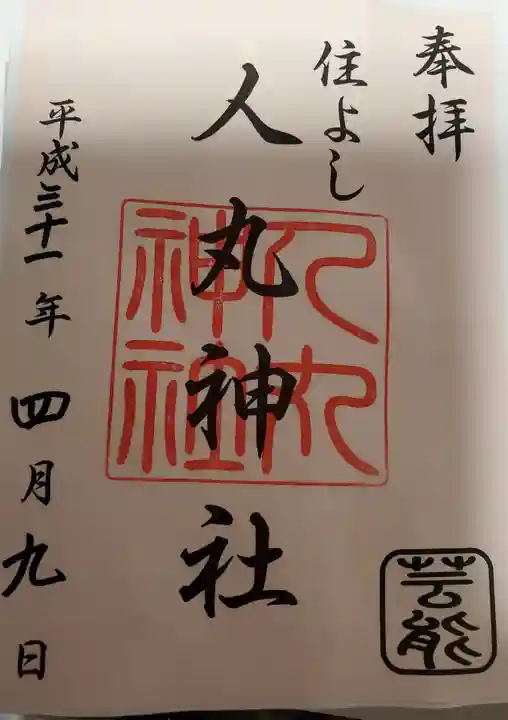 奉拝
住よし
人丸神社
人丸
神社
平成三十一年四月九日
芸能